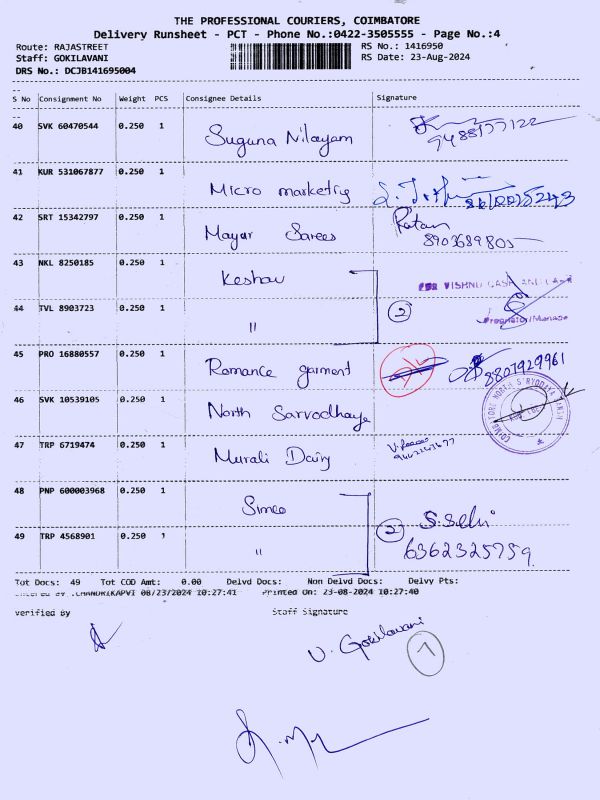 THE PROFESSIONAL COURIERS, COIMBATORE
Delivery Runsheet - PCT - Phone No.:0422-3505555 - Page No.:4
Route: RAJASTREET RS No.: 1416950
Staff: GOKILAVANI RS Date: 23-Aug-2024
DRS No.: DCJB141695004
S No Consignment No Weight PCS Consignee Details Signature
40 SVK 60470544 0.250 1 Suguna Nilayam 9488177122
41 KUR 531067877 0.250 1 Micro marketing
42 SRT 15342797 0.250 1 Mayur Sarees Ratan
8903689805
43 NKL 8250185 0.250 1 Keshav FOR VISHNU CASH AND CARRY
44 TVL 8903723 0.250 1 " 2
Proprietor/Manager
45 PRO 16880557 0.250 1 Romance garment 8807929961
46 SVK 10539105 0.250 1 North Sarvodhaya
47 TRP 6719474 0.250 1 Murali Dairy
48 PNP 600003968 0.250 1 Simco S.Selvi
49 TRP 4568901 0.250 1 " 2 6362325759
Tot Docs: 49 Tot COD Amt: 0.00 Delvd Docs: Non Delvd Docs: Delvy Pts:
08/23/2024 10:27:41 Printed On: 23-08-2024 10:27:40
verified By Staff Signature
V. Gokilavani
7